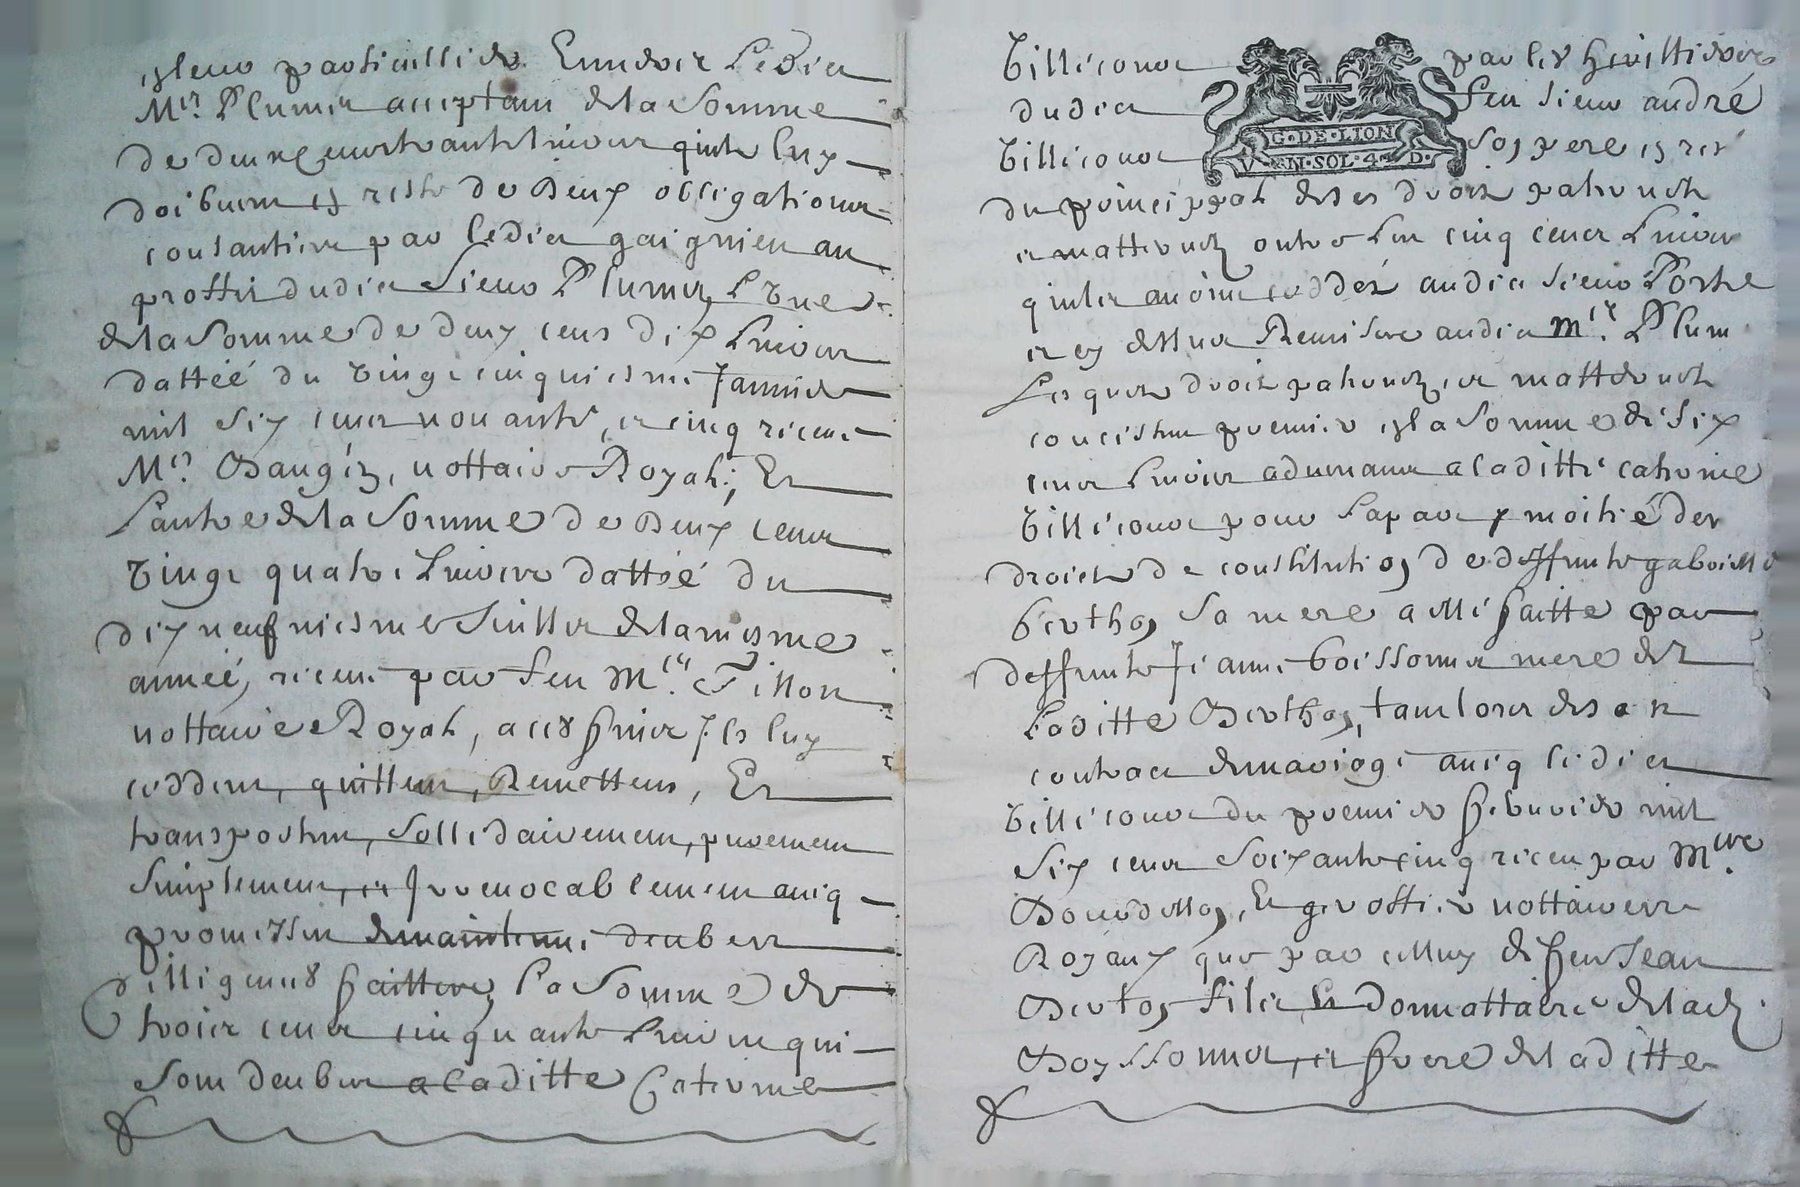 et leur particullier Envers Ledict
Mer. Plumier acceptant de la Somme
de quattre livres quils luy
doibvent et reste de Deux obligations
consanties par ledict gaignieu au
proffit dudict Sieur Plumier, L'Une
de la Somme de deux cens dix Livres
dattéé du vingt cinquiesme Janvier
mil six cens nonante, et cinq receue
Me. Daugés, nottaire Royal; Et
L'autre de la Somme de Deux cens
vingt quatre Livres dattéé du
dix neufviesme Juillet de la mesme
année, receue par feu Me. Tillon
nottaire Royal, a ces fins Ils luy
ceddent, quittent, Remettent, Et
transportent, Sollidairement, purement
Simplement, et Irrevocablement avec
promesse de maintenir deubes et
dilligences faittes, La Somme de
trois cens cinquante Livres qui
Sont deubes a laditte Catrine
billicour par les heritiers
dudict feu sieur andré
billicour Son pere et reste
G. DE LION
V N SOL 4 D.
du principal de ses droits paternels
et matternels outre Les cinq cens Livres
qu'elle a ceddéz audict sieur Porte
et en dessus Remise audict Me. Plum
Lesquels droits paternels, et matternels
concistent premier et la Somme de Six
cens Livres advenant a laditte catrine
billicour pour Sa part et moitié des
droicts de constitution de deffunte gaborielle
berthon Sa mere a elle faitte par
deffunte Jeanne boissonnet mere de
Laditte Berthon, tant lors de son
contract de mariage avecq ledict
billicour du premier febvrier mil
Six cens Soixante cinq receu par Me.
Bourdellon, Et gerottier nottaires
Royaux que par celluy de feu Jean
Berton fils et donnattaire de lad.
Boyssonnet, et frere de laditte